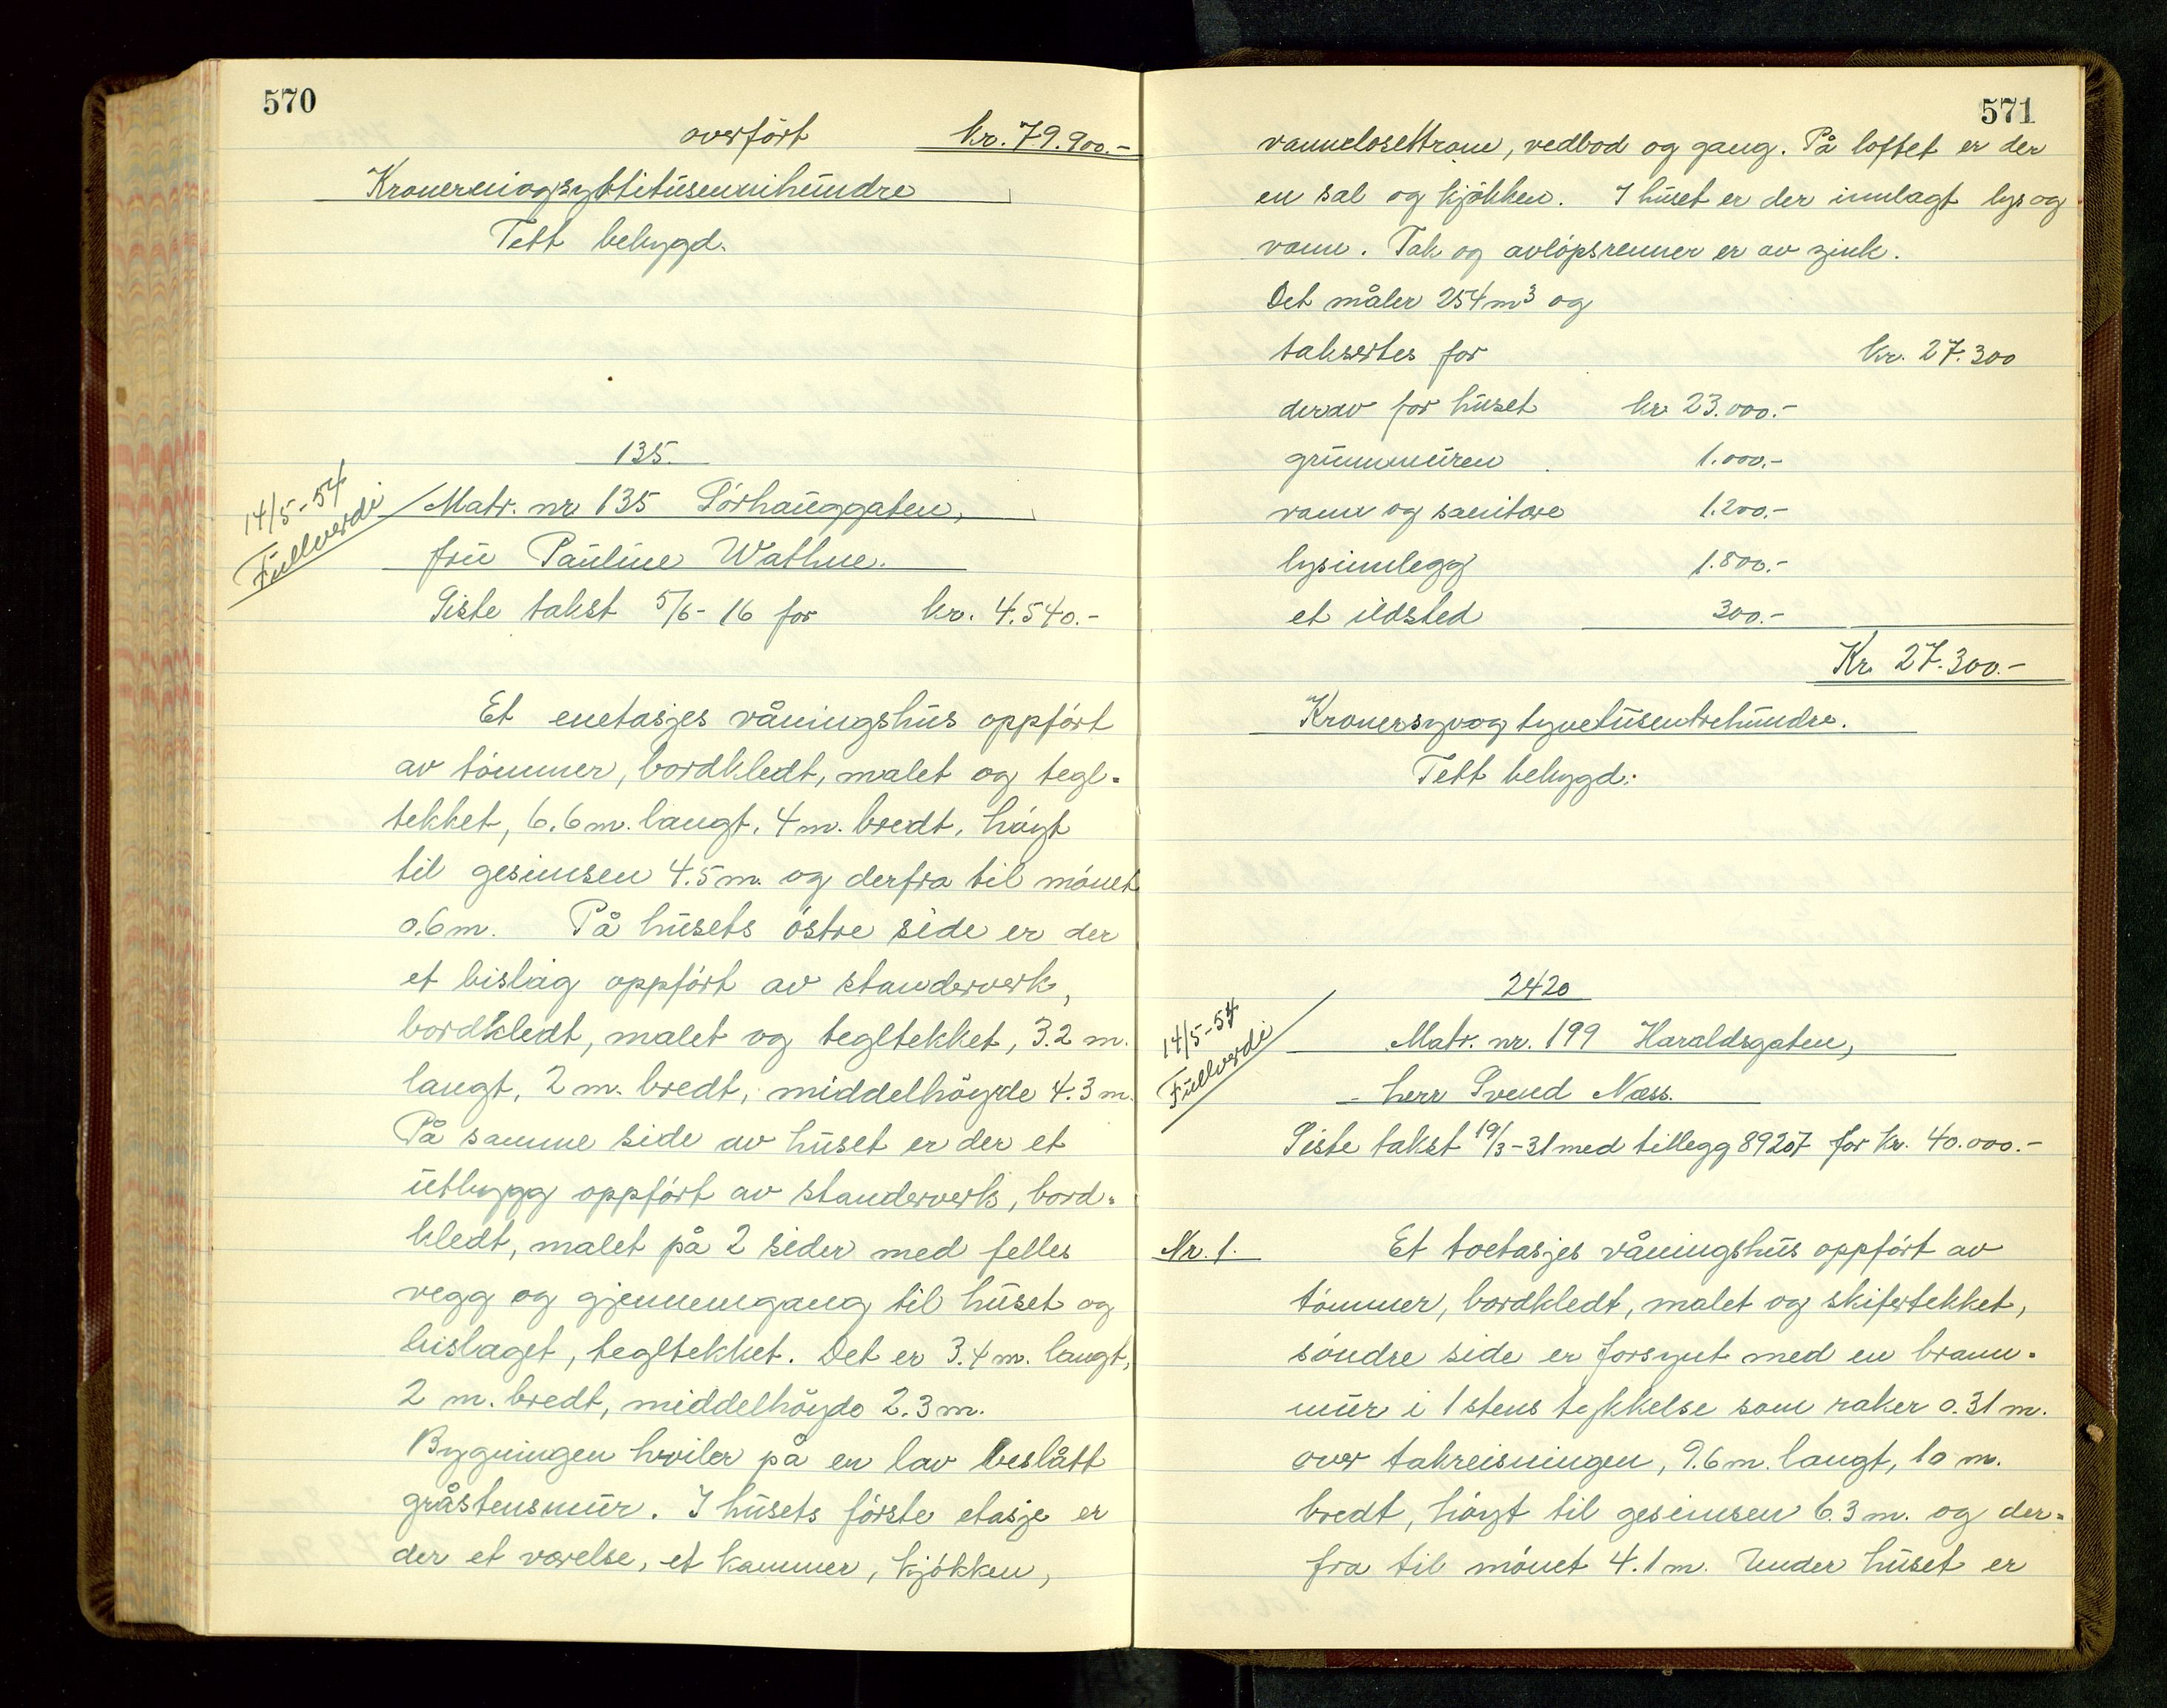 570
overført kr. 79.900.-
Kronerniogsyttitusennihundre
Tett bebygd.
135.
14/5-54
Fullverdi
Matr. nr 135 Sørhauggaten,
fru Pauline Wathne.
Siste takst 5/6-16 for kr. 4.540.-
Et enetasjes våningshus oppført
av tømmer, bordkledt, malet og tegl-
tekket, 6.6 m. langt, 4 m. bredt, høyt
til gesimsen 4.5 m. og derfra til mønet
0.6 m. På husets østre side er der
et bislag oppført av standerverk,
bordkledt, malet og tegltekket, 3.2 m.
langt, 2 m. bredt, middelhøyde 4.3 m.
På samme side av huset er der et
utbygg oppført av standerverk, bord-
kledt, malet på 2 sider med felles
vegg og gjennemgang til huset og
bislaget, tegltekket. Det er 3.4 m. langt,
2 m. bredt, middelhøyde 2.3 m.
Bygningen hviler på en lav beslått
gråstensmur. I husets første etasje er
der et værelse, et kammer, kjøkken,
571
vannclosettrom, vedbod og gang. På loftet er der
en sal og kjøkken. I huset er der innlagt lys og
vann. Tak og avløpsrenner er av zink.
Det måler 254 m³ og
taksertes for kr. 27.300
derav for huset kr 23.000.-
grunnmuren 1.000.-
vann og sanitære 1.200.-
lysinnlegg 1.800.-
et ildsted 300.-
Kr. 27.300.-
Kronersyvogtyvetusentrehundre.
Tett bebygd.
2420
14/5-54
Fullverdi
Matr. nr. 199 Haraldsgaten,
- herr Svend Næss.
Siste takst 19/3-31 med tillegg 89207 for kr. 40.000.-
Nr. 1. Et toetasjes våningshus oppført av
tømmer, bordkledt, malet og skifertekket,
søndre side er forsynt med en brann-
mur i 1 stens tykkelse som raker 0.31 m.
over takreisningen, 9.6 m. langt, 10 m.
bredt, høyt til gesimsen 6.3 m. og der-
fra til mønet 4.1 m. Under huset er